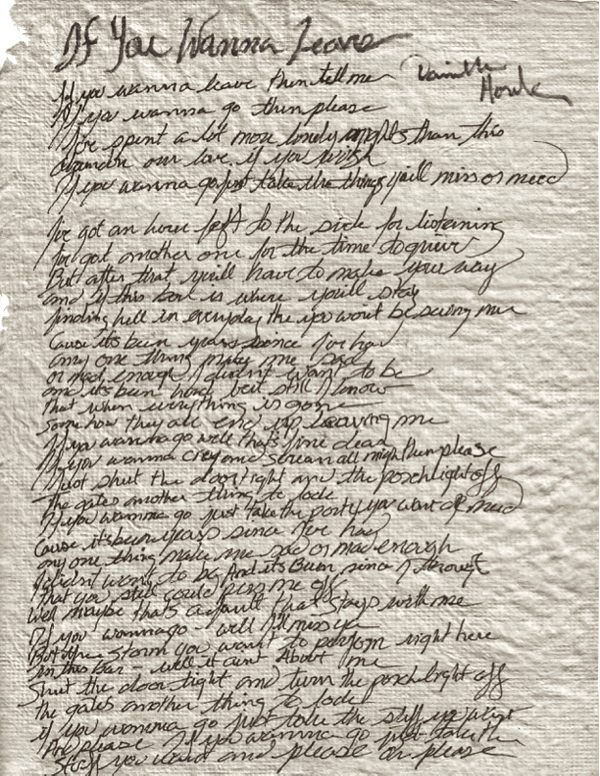 If You Wanna Leave
If you wanna leave then tell me
If you wanna go then please
I've spent a lot more lonely nights than this
abandon our love if you wish
If you wanna go just take the things you'll miss or need
I've got an hour left to the side for listening
I've got another one for the time to
But after that you'll have to make your way
and if this bar is where you'll stay
finding hell in everyday then you won't be seeing me
Cause its been years since I've had
any one thing make me sad
or mad enough I didn't want to be
and its been hard but still I know
that when everything is gone
Somehow they all end up Leaving me
If you wanna go well that's fine dear
If you wanna cry and scream all night then please
Just shut the door tight and the porchlight off
The gates another thing to lock
If you wanna go just take the you want or need
Cause its been years since I've had
any one thing make me sad or mad enough
I didn't want to be And its Been since I
That you still could piss me off
Well maybe that's a fault that stays with me
If you wanna go - well I'll miss you
But the storm you want to perform right here
in this Bar - well it aint About me
Shut the door tight and turn the porchlight off
the gates another thing to lock
if you wanna go just take the stuff you want
And please If you wanna go just take the
Stuff you want and please oh please